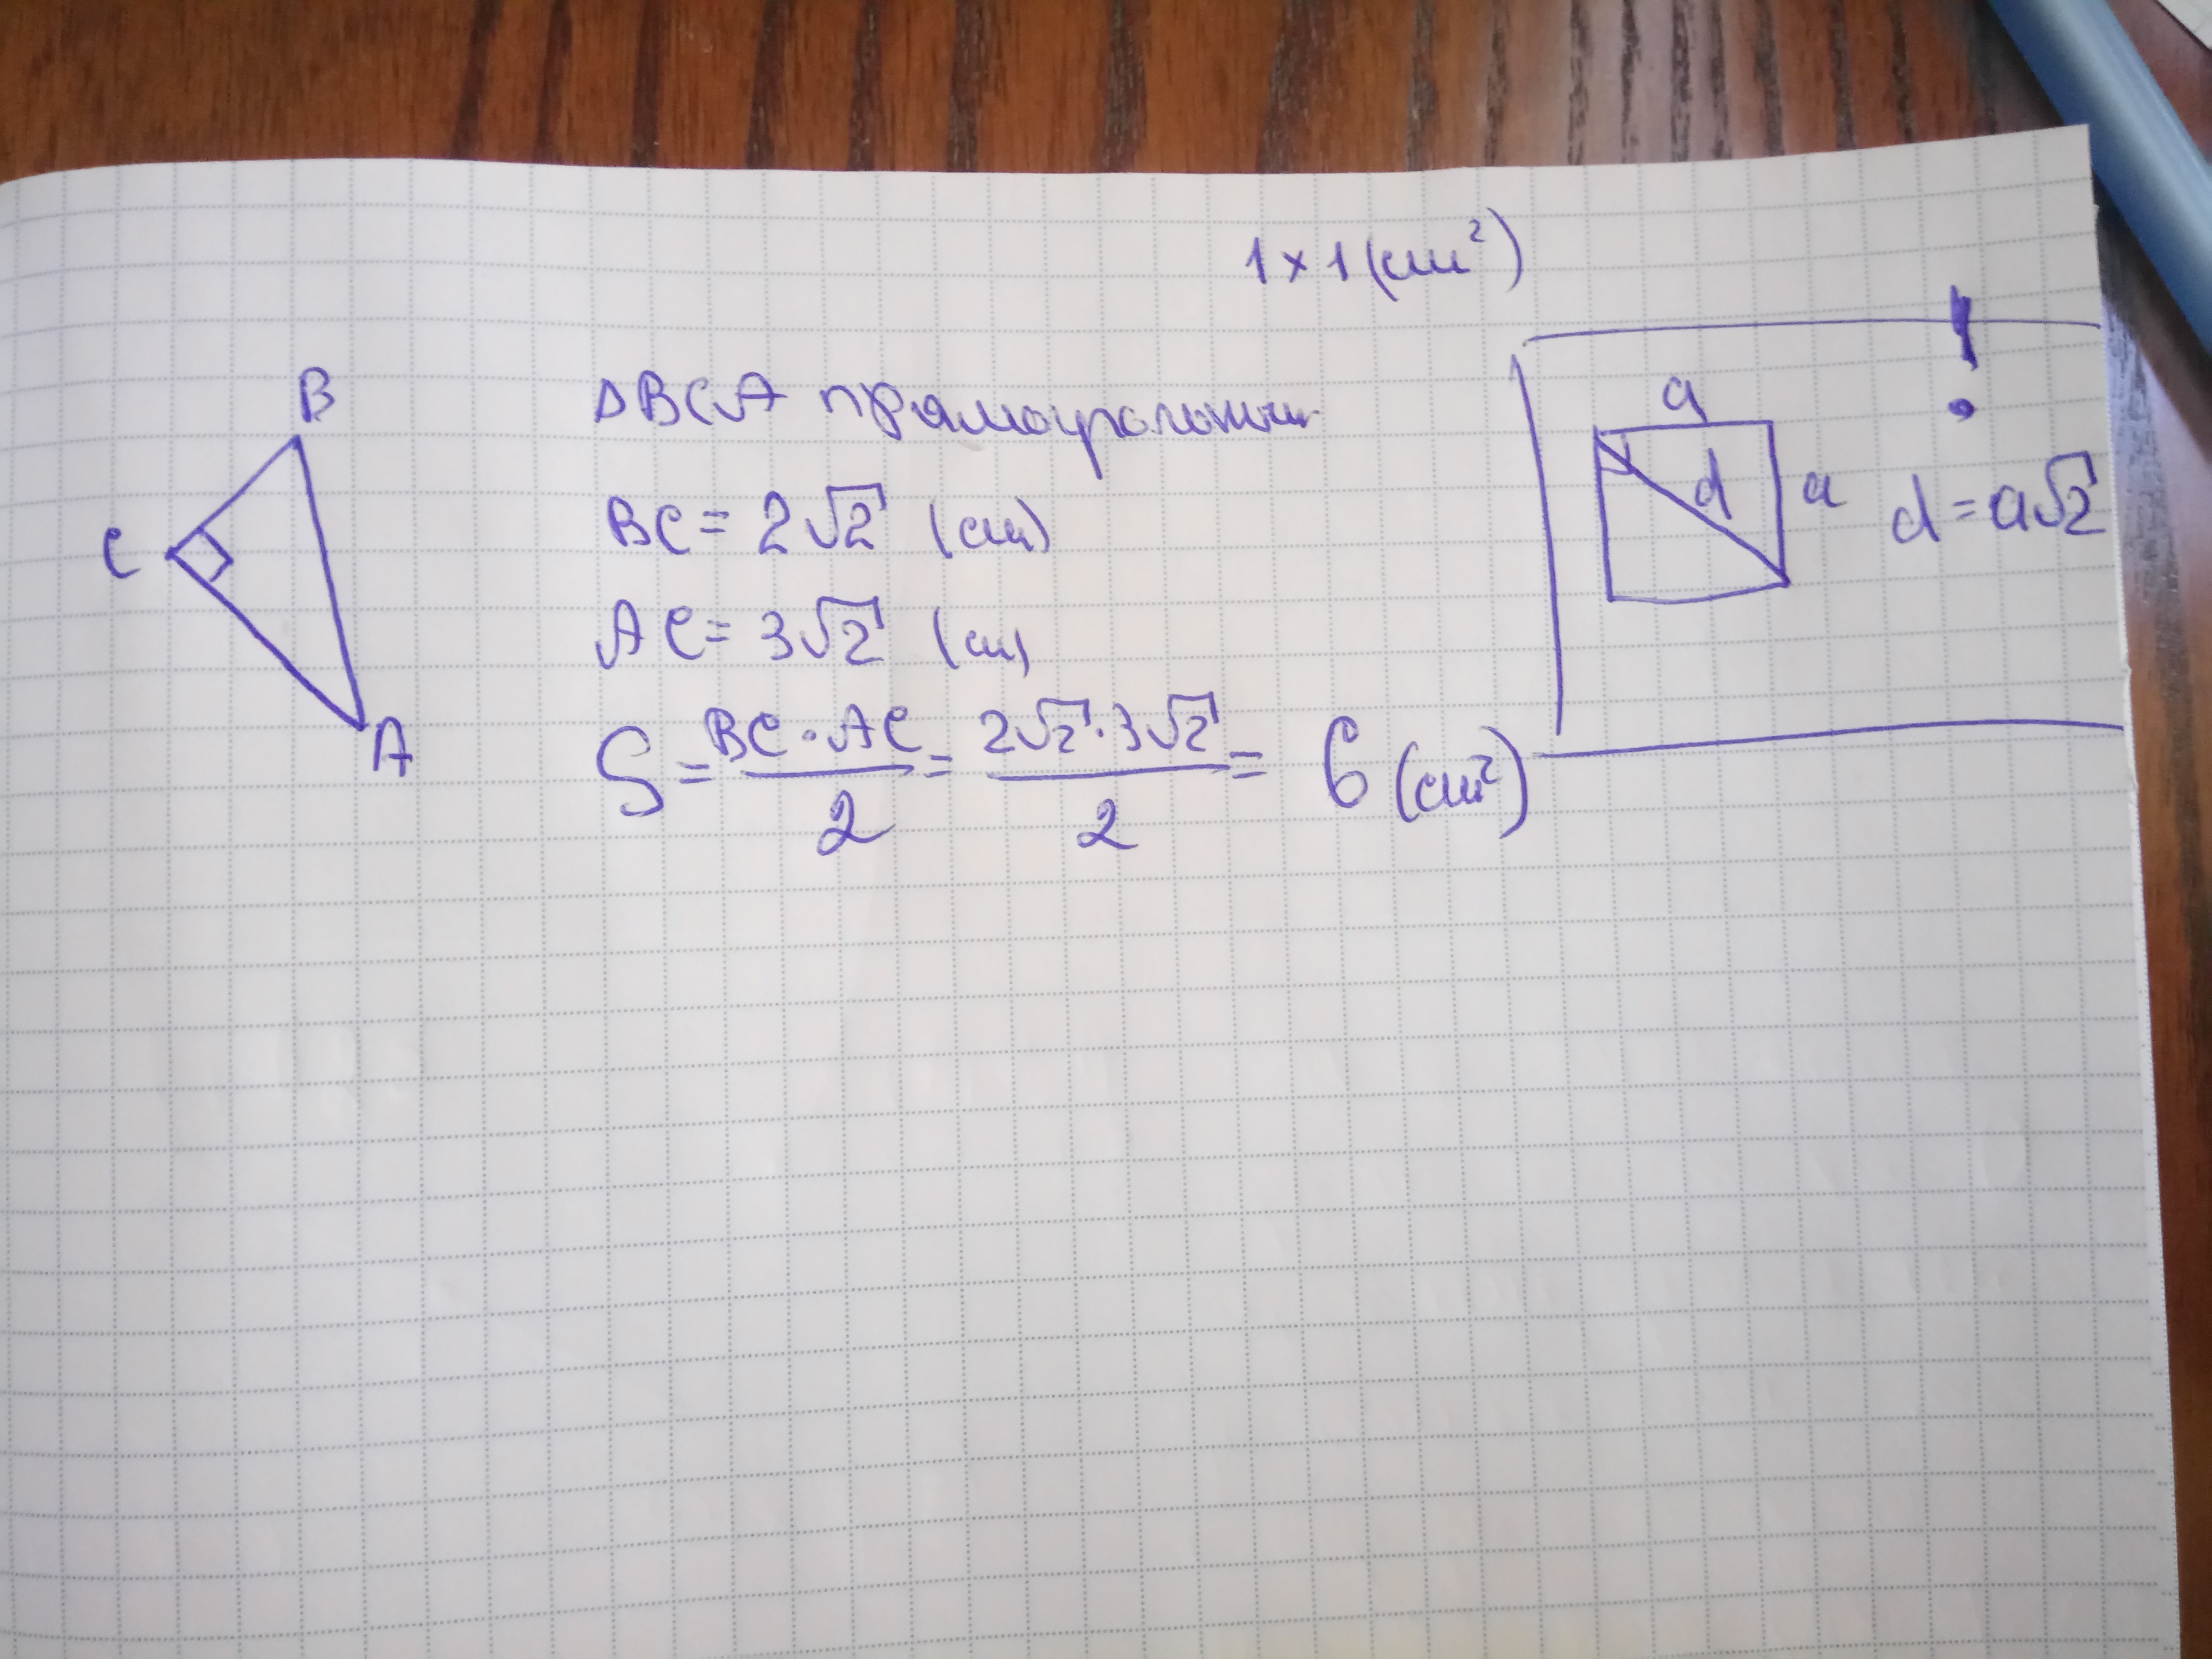 1 × 1 (см²)
B
C
A
ΔBCA прямоугольный
BC = 2√2 (см)
AC = 3√2 (см)
S = BC · AC / 2 = 2√2 · 3√2 / 2 = 6 (см²)
!
a
d
a
d = a√2